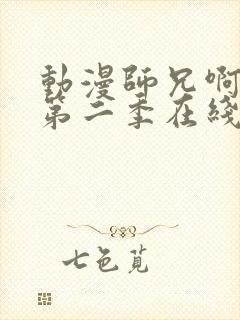 動漫師兄啊
第二季在綫
七色覓